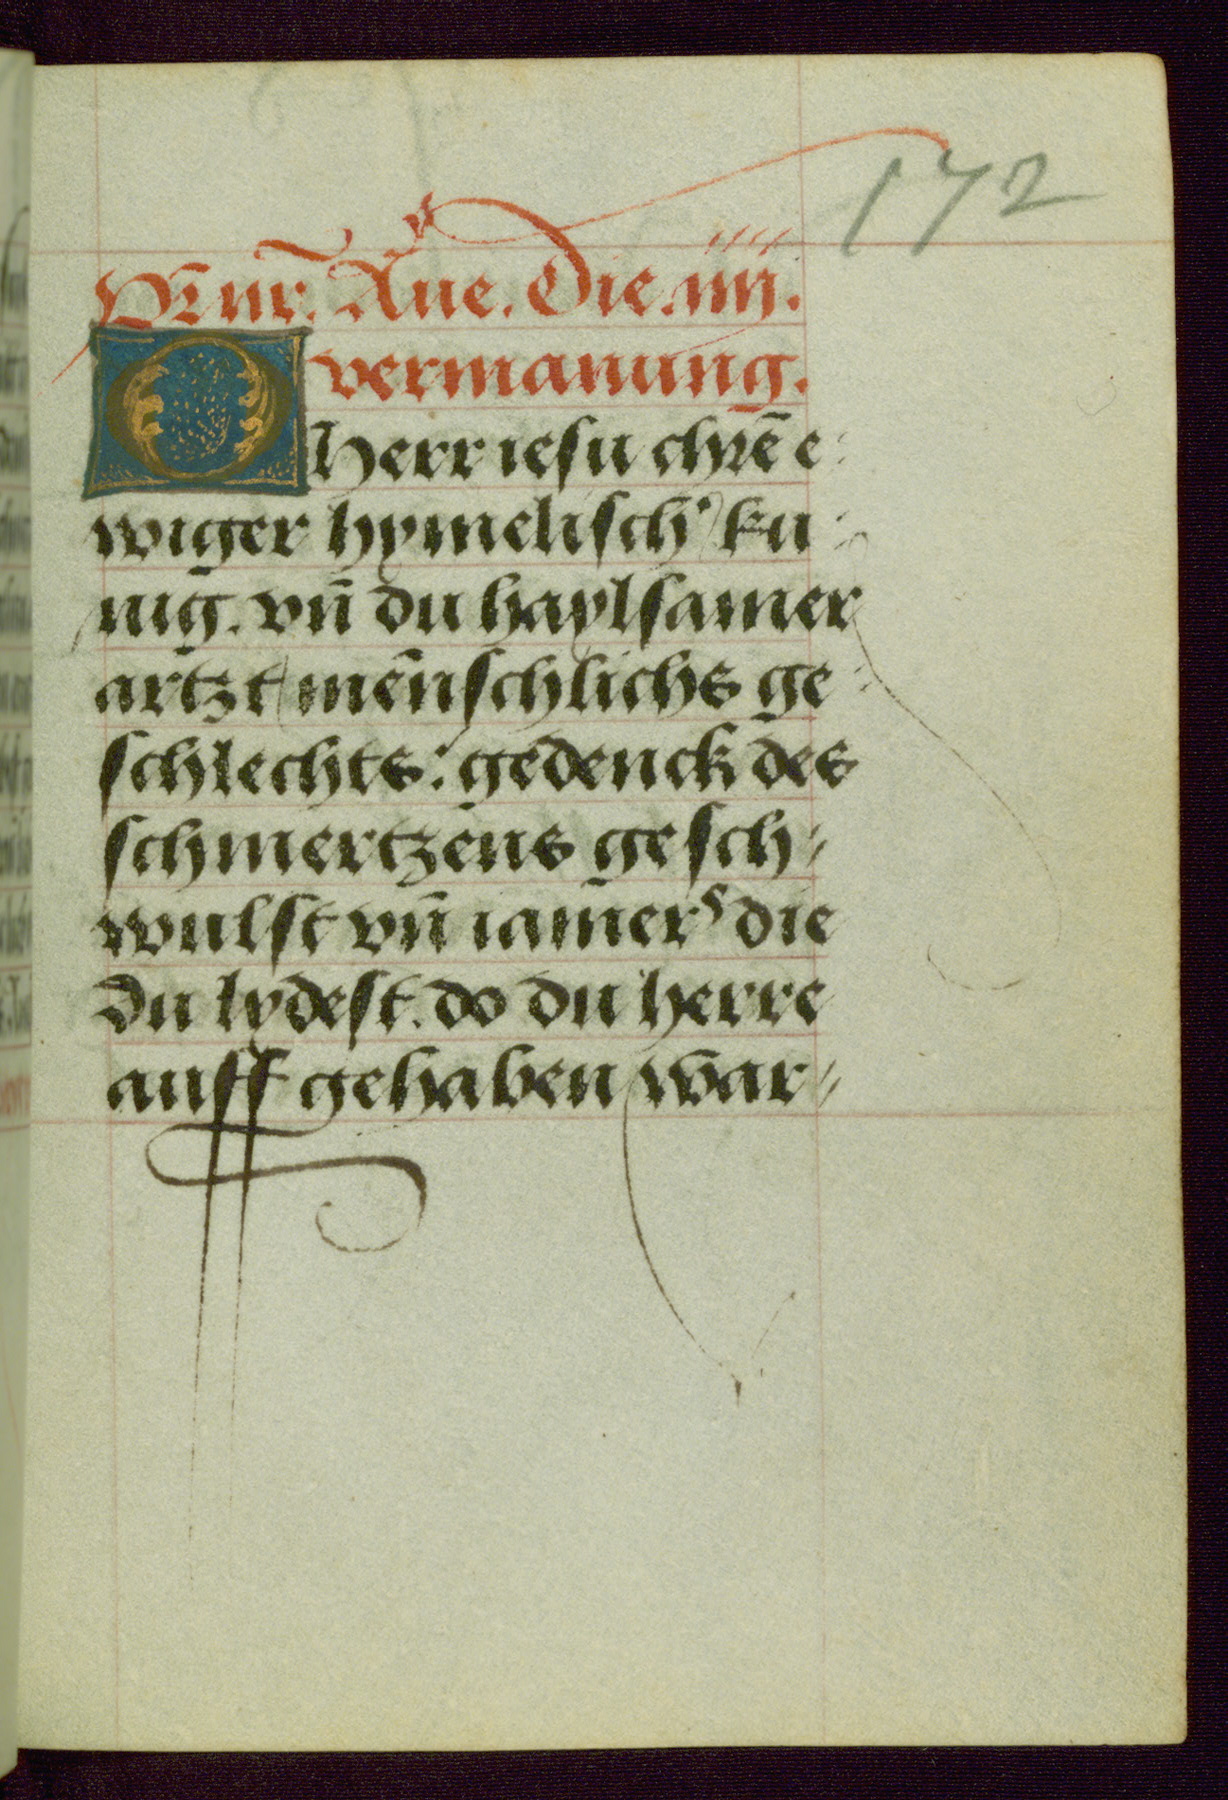 172
Pr̃ nr̃. Aue. Die .iiij.
vermanung.
O herr iesu chrē e:
wiger hymelisch' ku:
nig. vn̄ du haylsamer
artzt mēnschlichs ge:
schlechts: gedenck des
schmertzens gesch:
wulst vn̄ iam̄ers die
du lydest. do du herre
auff gehaben war: